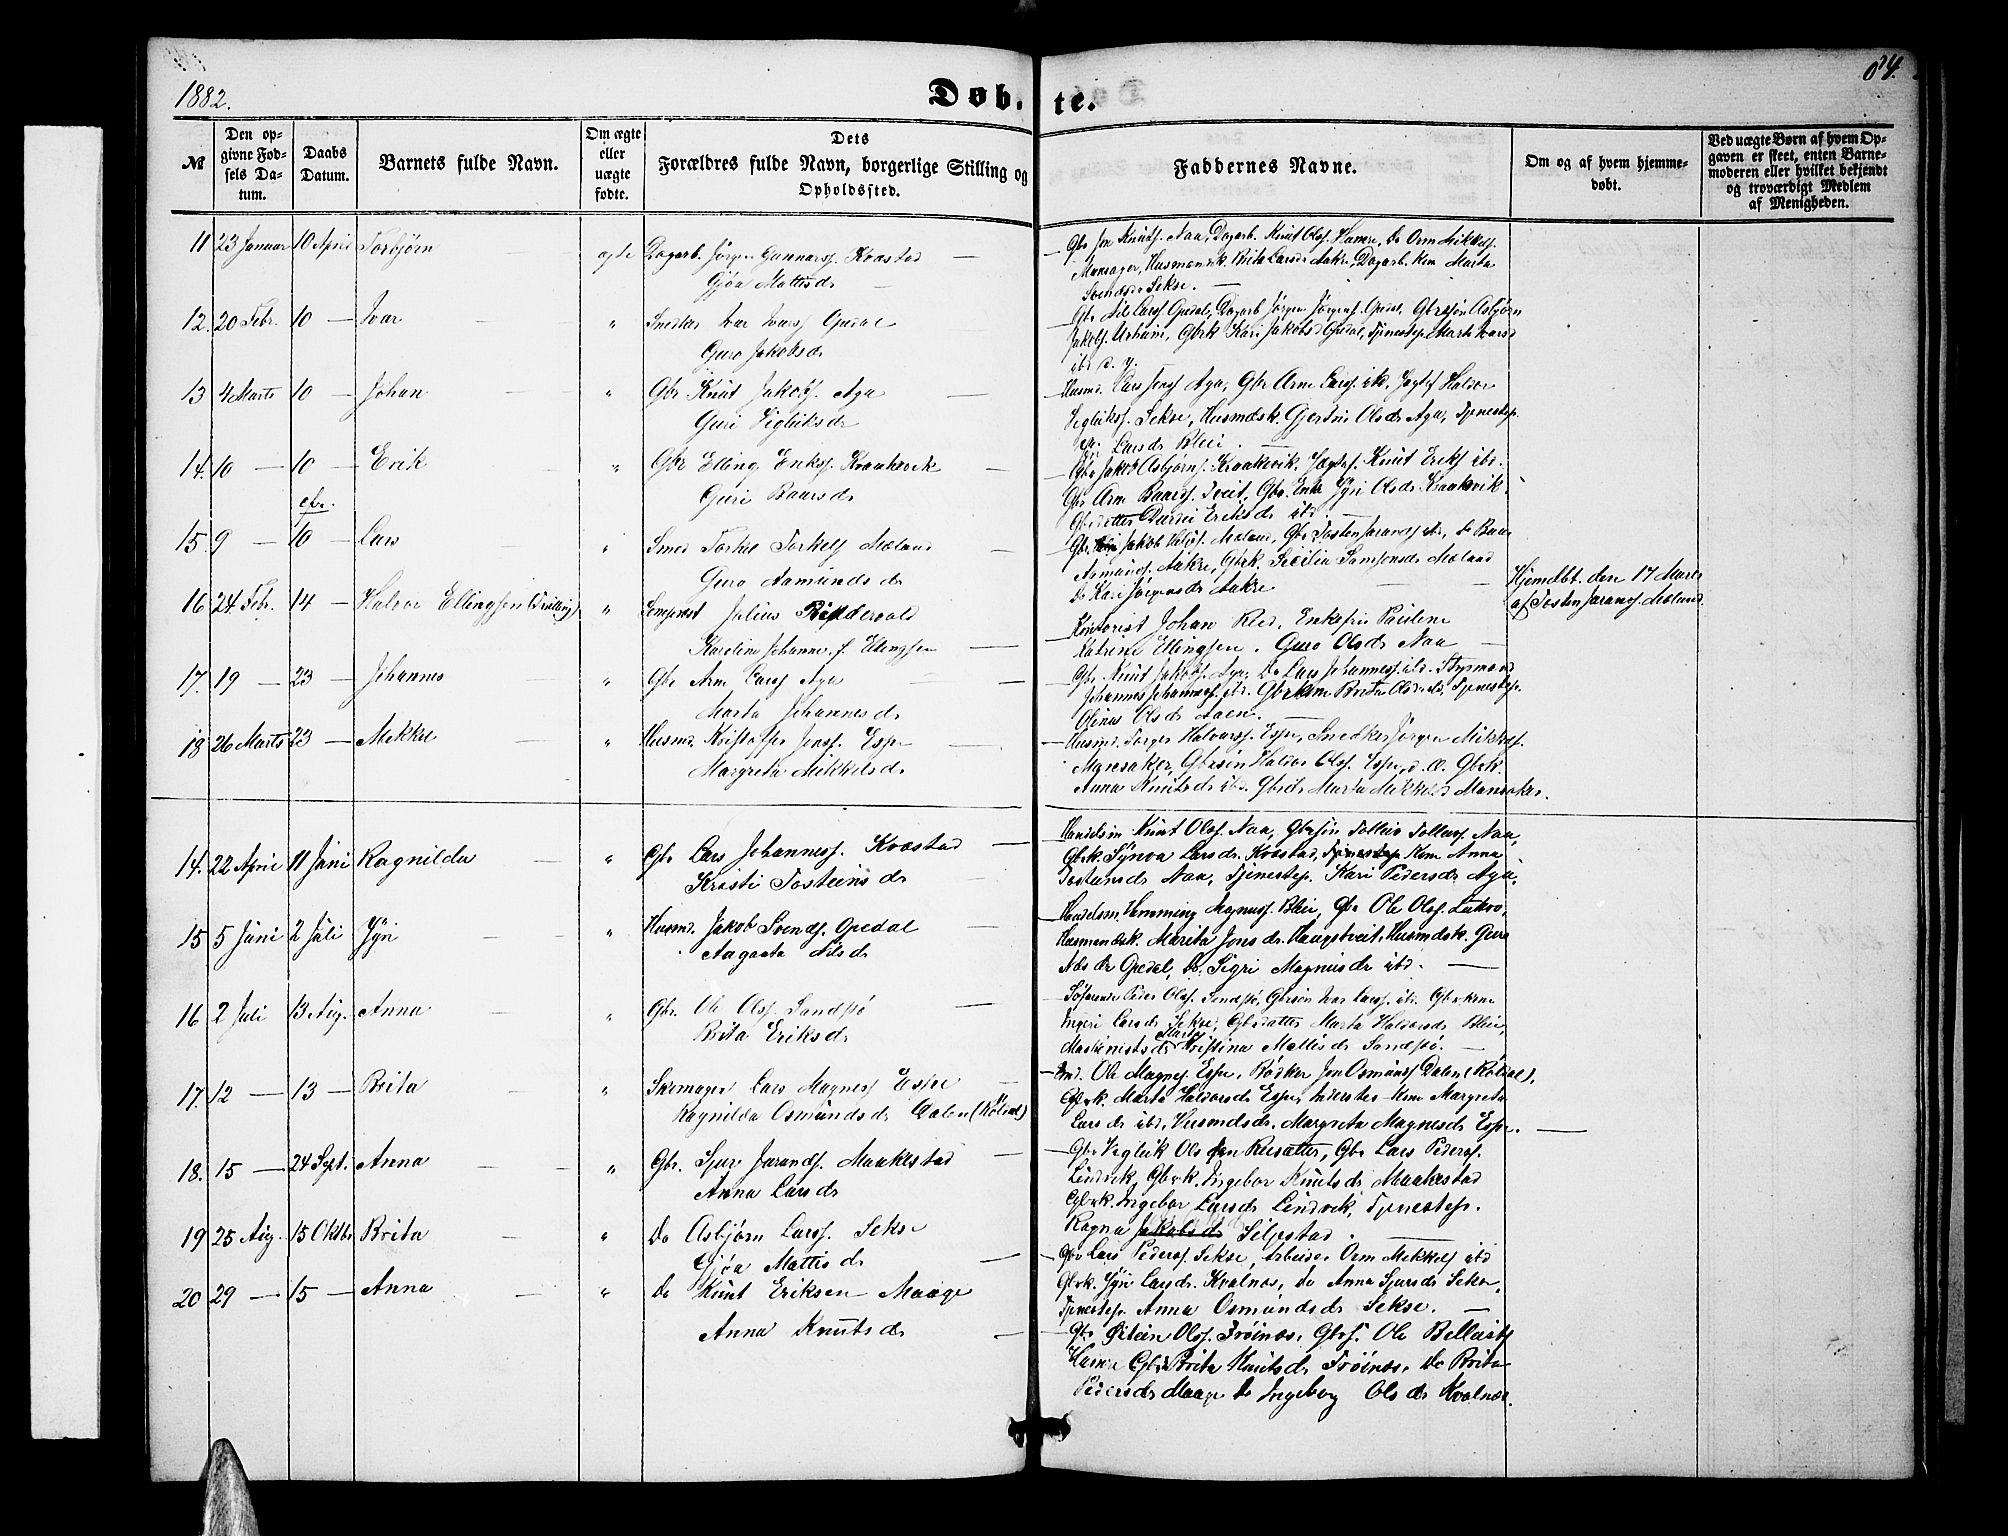 1882.
Døb-te.
64.
№
Den opgivne Fødsels Datum.
Daabs Datum.
Barnets fulde Navn.
Om ægte eller uægte fødte.
Dets Forældres fulde Navn, borgerlige Stilling og Opholdssted.
Faddernes Navne.
Om og af hvem hjemmedøbt.
Ved uægte Børn af hvem Opgaven er skeet, enten Barnemoderen eller hvilket bekjendt og troværdigt Medlem af Menigheden.
11 23 Januar 10 April Torbjørn ægte Dagarb. Jörgen Gunnars. Kvæstad
Gjöa Mattisdr
Gbr Jon Knuts. Naa, Dagarb. Knut Ols. Hamre, Do Orm Mikkels.
Mansager, Husmandsk. Brita Larsdr Aakre, Dagarb. Kone Marta
Svendsdr Sekse.
12. 20 Febr. 10 — Ivar " Snedker Ivar Ivars Opedal
Guro Jakobsdr
Gbr Nils Larss Opedal, Dagarb Jörgen Jörgens. Opedal, Gbrssön Asbjörn
Jakobs. Urheim, Gbrk Kari Jakobsd Opedal, Tjenestep. Marta Ivarsd
ibd
13 4 Marts 10 — Johan " Gbr Knut Jakobs. Aga
Guri Vigluksdr
Husmd. Lars Jens. Aga, Gbr Arne Larss. ibd, Haldor
Vigluks. Sekse, Husmdsk. Gjertru Olsdr Aga, Tjenestep.
Larsdr Bleie.
14. 10 — 10 — Erik " Gbr Elling Eriks. Kraakevik
Guri Baarsdr
Gbr Jakob Asbjörns. Kraakevik, Knut Eriks ibd.
Gbr Arne Baards. Tveit, Gbr. Enke Jyri Olsdr Kraakevik
Gbrdatter Durdei Eriksdr ibd.
15. 9 — 10 — Lars " Smed Torkel Torkels Mæland
Guro Aamundsdr
Gbr. Jakob Mæland, Gbr Tosten Jarands ibd, Do Baar
Asmunds. Aakre, Gbrk. Secilia Samsonsdr Mæland
Do Kari Jörgensdr Aakre
Hjemdbt. den 17 Marts
af Tosten Jarands. Mæland
16 24 Febr. 14 — Halvor Ellingsen (Tvilling) " Julius
Karoline Johanne f. Ellingsen
Johan Enkefru Pauline
Katrine Ellingsen. Guro Olsdr Naa
17. 19 — 23 — Johannes " Gbr Arne Larss Aga
Marta Johannesdr
Gbr. Knut Jakobs. Aga, Do Lars Johanness. ibd. Styrmand
Johannes Johanness. ibd. Gbrkone Brita Olsdr ibd. Tjenestep.
Olina Olsdr Aaen.
18 26 Marts 23 — Mikkel " Husmd. Kristoffer Jens. Espe
Margreta Mikkelsdr
Husmd. Torger Halvars. Espe, Snedker Jörgen Mikkels.
Mansaker, Gbrsön Haldor Ols. Espe, Gbrk.
Anna Knutsdr ibd. Gbrdtr Marta Mikkelsd Mansaker.
14. 22 April 11 Juni Ragnilda " Gbr Lars Johanness. Kvæstad
Kristi Tosteinsdr
Handelsm Knut Ols. Naa, Gbrsön Tolleiv Tolleivs. Naa,
Gbrk. Synva Larsdr. Kvæstad, Tjenestep. Kone Anna
Tosteinsdr Naa, Tjenestep. Kari Pedersdr Aga.
15 5 Juni 2 Juli Jyri " Husmd. Jakob Svends. Opedal
Aagaata Nilsdr
Handelsm. Hemming Magnuss. Bleie, Gbr Ole Ols. Lutro,
Husmandsk. Marita Jonsdr. Haugstveit, Husmdsk. Guro
Nilsdr Opedal, Do. Sigri Magnusdr ibd.
16 2 Juli 13 Aug. Anna " Gbr. Ole Ols. Sandstö
Brita Eriksdr
Söfarende Peder Ols. Sandstö, Gbrsön Ivar Larss. ibd. Gbrkone
Ingeri Larsdr Sekse, Gbrdatter Marta Haldorsdr Bleie,
Maskinistsdr Marta Kristina Mattisdr Sandstö.
17. 12 — 13 — Brita " Skomager Lars Magness Espe
Ragnilda Osmundsdr Dalen (Röldal)
Ole Magness. Espe, Bödker Jon Osmunds Dalen (Röldal),
Gbrk. Marta Haldorsdr Espe, Inderstes Kone Margreta
Larsdr ibd, Husmdsdr. Margreta Magnesdr Espe.
18. 15 — 24 Sept. Anna " Gbr. Sjur Jarands. Maakestad
Anna Larsdr
Gbr Vigluik Olsen Reisæter, Gbr Lars Peders.
Lindvik, Gbrk. Ingebor Knutsdr Maakestad
Gbrk. Ingebor Larsdr Lindvik, Tjenestep.
Ragna Jakobsdr Siljestad.
19 25 Aug. 15 Oktbr Brita " Do Asbjörn Larss. Sekse
Gjöa Mattisdr
Gbr Lars Peders Sekse, Arbeider Orm Mikkels ibd
Gbrk. Jyri Larsdr. Kvalnes, do Anna Sjursdr Sekse,
Tjenestep. Anna Osmundsdr Sekse.
20 29 — 15 — Anna " Do Knut Eriksen Maage
Anna Knutsdr
Gbr Östein Ols. Fröinæs, Gbrs. Ole
Hamre Gbrk Brita Knutsdr Fröinæs, Do Brita
Pedersdr Maage Do Ingebog Olsdr Kvalnæs.